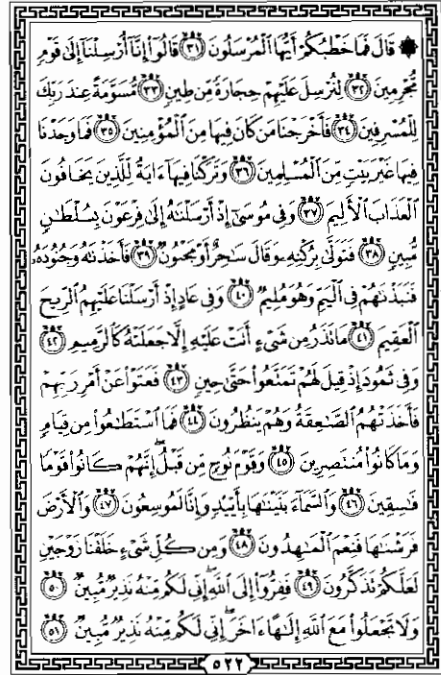 ۞ قَالَ فَمَا خَطْبُكُمْ أَيُّهَا ٱلْمُرْسَلُونَ ٣١ قَالُوٓا۟ إِنَّآ أُرْسِلْنَآ إِلَىٰ قَوْمٍ
مُّجْرِمِينَ ٣٢ لِنُرْسِلَ عَلَيْهِمْ حِجَارَةً مِّن طِينٍ ٣٣ مُّسَوَّمَةً عِندَ رَبِّكَ
لِلْمُسْرِفِينَ ٣٤ فَأَخْرَجْنَا مَن كَانَ فِيهَا مِنَ ٱلْمُؤْمِنِينَ ٣٥ فَمَا وَجَدْنَا
فِيهَا غَيْرَ بَيْتٍ مِّنَ ٱلْمُسْلِمِينَ ٣٦ وَتَرَكْنَا فِيهَآ ءَايَةً لِّلَّذِينَ يَخَافُونَ
ٱلْعَذَابَ ٱلْأَلِيمَ ٣٧ وَفِى مُوسَىٰٓ إِذْ أَرْسَلْنَٰهُ إِلَىٰ فِرْعَوْنَ بِسُلْطَٰنٍ
مُّبِينٍ ٣٨ فَتَوَلَّىٰ بِرُكْنِهِۦ وَقَالَ سَٰحِرٌ أَوْ مَجْنُونٌ ٣٩ فَأَخَذْنَٰهُ وَجُنُودَهُۥ
فَنَبَذْنَٰهُمْ فِى ٱلْيَمِّ وَهُوَ مُلِيمٌ ٤٠ وَفِى عَادٍ إِذْ أَرْسَلْنَا عَلَيْهِمُ ٱلرِّيحَ
ٱلْعَقِيمَ ٤١ مَا تَذَرُ مِن شَىْءٍ أَتَتْ عَلَيْهِ إِلَّا جَعَلَتْهُ كَٱلرَّمِيمِ ٤٢
وَفِى ثَمُودَ إِذْ قِيلَ لَهُمْ تَمَتَّعُوا۟ حَتَّىٰ حِينٍ ٤٣ فَعَتَوْا۟ عَنْ أَمْرِ رَبِّهِمْ
فَأَخَذَتْهُمُ ٱلصَّٰعِقَةُ وَهُمْ يَنظُرُونَ ٤٤ فَمَا ٱسْتَطَٰعُوا۟ مِن قِيَامٍ
وَمَا كَانُوا۟ مُنتَصِرِينَ ٤٥ وَقَوْمَ نُوحٍ مِّن قَبْلُ ۖ إِنَّهُمْ كَانُوا۟ قَوْمًا
فَٰسِقِينَ ٤٦ وَٱلسَّمَآءَ بَنَيْنَٰهَا بِأَيْي۟دٍ وَإِنَّا لَمُوسِعُونَ ٤٧ وَٱلْأَرْضَ
فَرَشْنَٰهَا فَنِعْمَ ٱلْمَٰهِدُونَ ٤٨ وَمِن كُلِّ شَىْءٍ خَلَقْنَا زَوْجَيْنِ
لَعَلَّكُمْ تَذَكَّرُونَ ٤٩ فَفِرُّوٓا۟ إِلَى ٱللَّهِ ۖ إِنِّى لَكُم مِّنْهُ نَذِيرٌ مُّبِينٌ ٥٠
وَلَا تَجْعَلُوا۟ مَعَ ٱللَّهِ إِلَٰهًا ءَاخَرَ ۖ إِنِّى لَكُم مِّنْهُ نَذِيرٌ مُّبِينٌ ٥١
٥٢٢